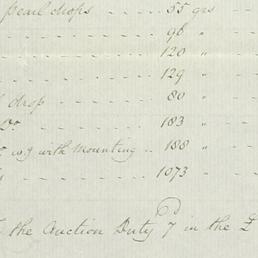 pearl drops - - - - - 55 grs -
- - - - - - - 96 " -
- - - - - - - 120 " -
- - - - - - - 129 " -
drop - - - - - - 80 " -
Do - - - - - - 183 " -
with Mounting - - 188 " -
- - - - - - - 1073 " -
the Auction Duty 7d in the £